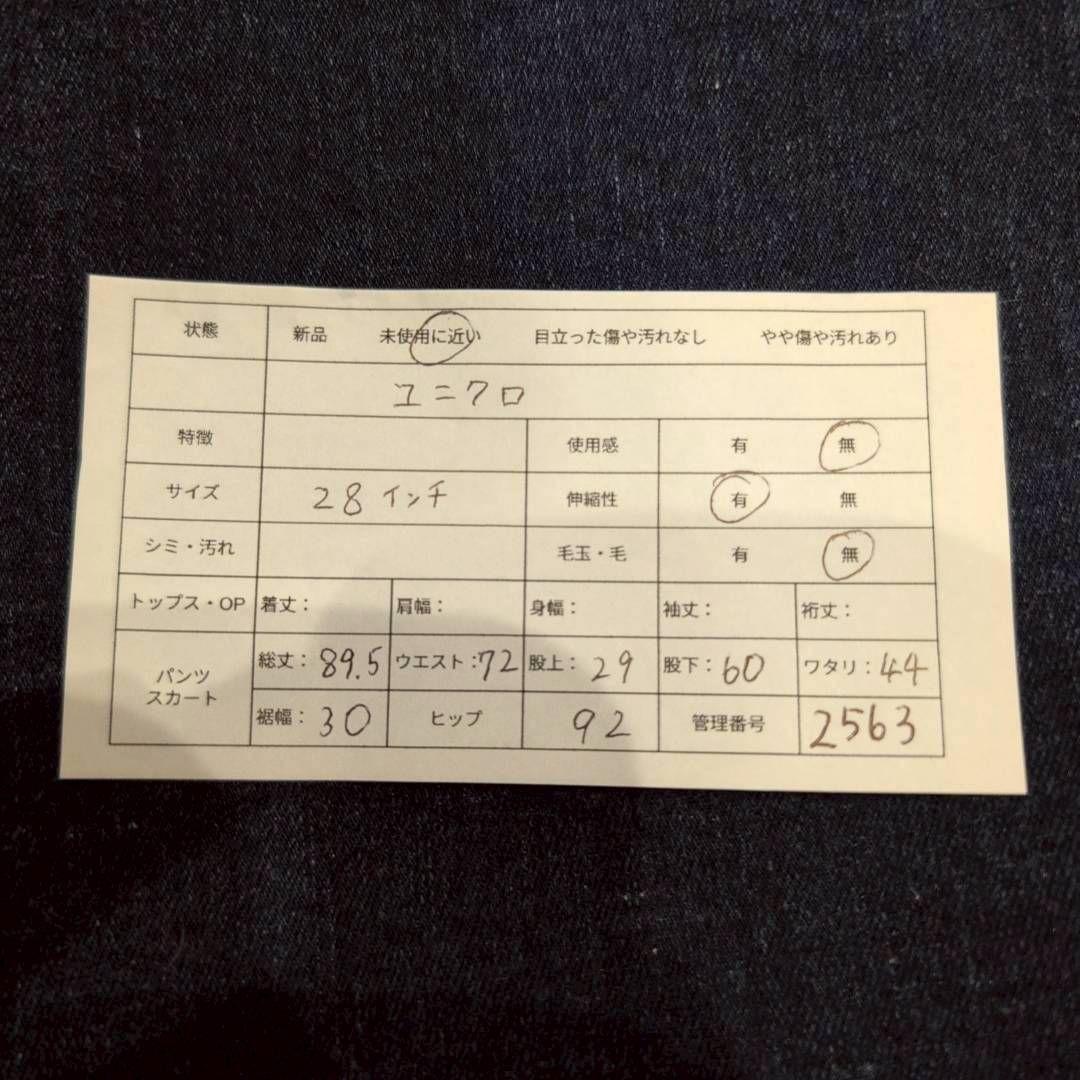 状態 新品 未使用に近い 目立った傷や汚れなし やや傷や汚れあり
ユニクロ
特徴 使用感 有 無
サイズ 28インチ 伸縮性 有 無
シミ・汚れ 毛玉・毛 有 無
トップス・OP 着丈： 肩幅： 身幅： 袖丈： 裄丈：
パンツ スカート 総丈：89.5 ウエスト：72 股上：29 股下：60 ワタリ：44
裾幅：30 ヒップ 92 管理番号 2563